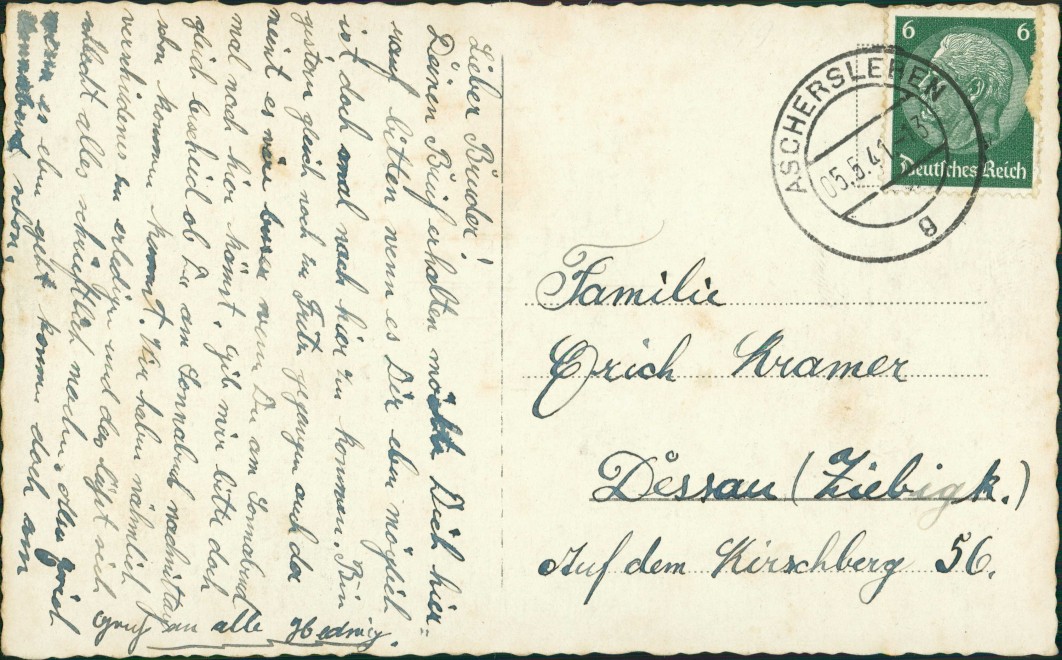 Lieber Bruder!
Deinen Brief erhalten möchte Dich hier=
rauf bitten wenn es Dir eben möglich
ist doch mal nach hier zu kommen. Bin
gestern gleich noch zu Fute gegangen auch da
meint es wäre besser wenn Du am Sonnabend
mal nach hier kämst, gib mir bitte doch
gleich bescheid ob Du am Sonnabend nachmittag
schon kommen kannst. Wir haben nähmlich
verschiedenes zu erledigen und das läßt sich
schlecht alles schriftlich machen, also
wenn es eben geht komme doch am
Sonnabend schon.
Gruß an alle Hedwig.
6 6
Deutsches Reich
ASCHERSLEBEN
05.5.41-13
g
Familie
Erich Kramer
Dessau (Ziebigk.)
Auf dem Kirschberg 56.